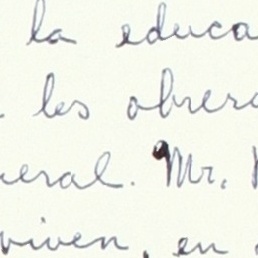 la educa
les obrera
neral. Mr.
viven, en